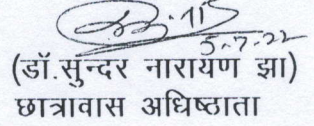 5-7-22
(डॉ.सुन्दर नारायण झा)
छात्रावास अधिष्ठाता